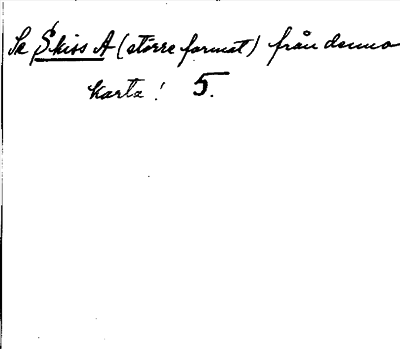 Se Skiss A (större format) från denna
karta! 5.